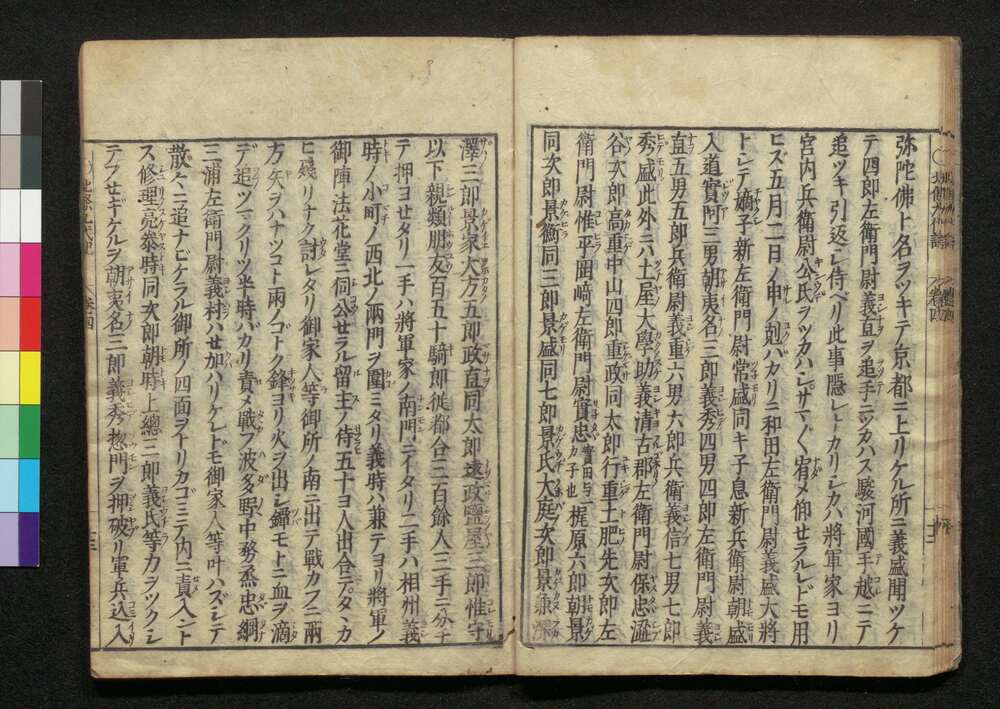 弥陀佛ト名ヲツキテ京都ニ上リケル所ニ義盛聞ツケ
テ四郎左衛門尉義直ヲ追手ニツカハス駿河國手越ニテ
追ツキ引返シ侍ベリ此事隠レナカリシカハ將軍家ヨリ
宮内兵衛尉公氏ヲツカハシサマ〴〵宥メ仰セラルレドモ用
ヒズ五月二日ノ申ノ剋バカリニ和田左衛門尉義盛大將
トシテ嫡子新左衛門尉常盛同キ子息新兵衛尉朝盛
入道實阿三男朝夷名三郎義秀四男四郎左衛門尉義
直五男五郎兵衛尉義重六男六郎兵衛尉義信七男七郎
秀盛此外ニハ土屋大學助義清古郡左衛門尉保忠澁
谷次郎高重中山四郎重政同太郎行重土肥先次郎左
衛門尉惟平岡﨑左衛門尉實忠實田与一カ子也梶原六郎朝景
同次郎景衡同三郎景盛同七郎景氏大庭次郎景兼深
澤三郎景家大方五郎政直同太郎遠政鹽屋三郎惟守
以下親類朋友百五十騎郎従都合三百餘人三手ニ分チ
テ押ヨセタリ一手ハ將軍家ノ南門ニイタリ二手ハ相州義
時ノ小町ノ西北ノ兩門ヲ圍ミタリ義時ハ兼テヨリ將軍ノ
御陣法花堂ニ伺公セラル留主ノ侍五十ヨ人出合テタヽカ
ヒ殘リナク討レタリ御家人等御所ノ南ニ出テ戰カフニ兩
方矢ヲハナツコト雨ノゴトク鋒ヨリ火ヲ出シ鐔モトニ血ヲ滴
デ追ツマクリツ半時バカリ責メ戰フ波多野中務烝忠綱
三浦左衛門尉義村ハセ加ハリケレドモ御家人等叶ハズシテ
散〻ニ追ナビケラル御所ノ四面ヲトリカゴミテ内ニ責入ント
ス修理亮泰時同次郎朝時上總三郎義氏等力ヲツクシ
テフセギケルヲ朝夷名三郎義秀惣門ヲ押破リ軍兵込入